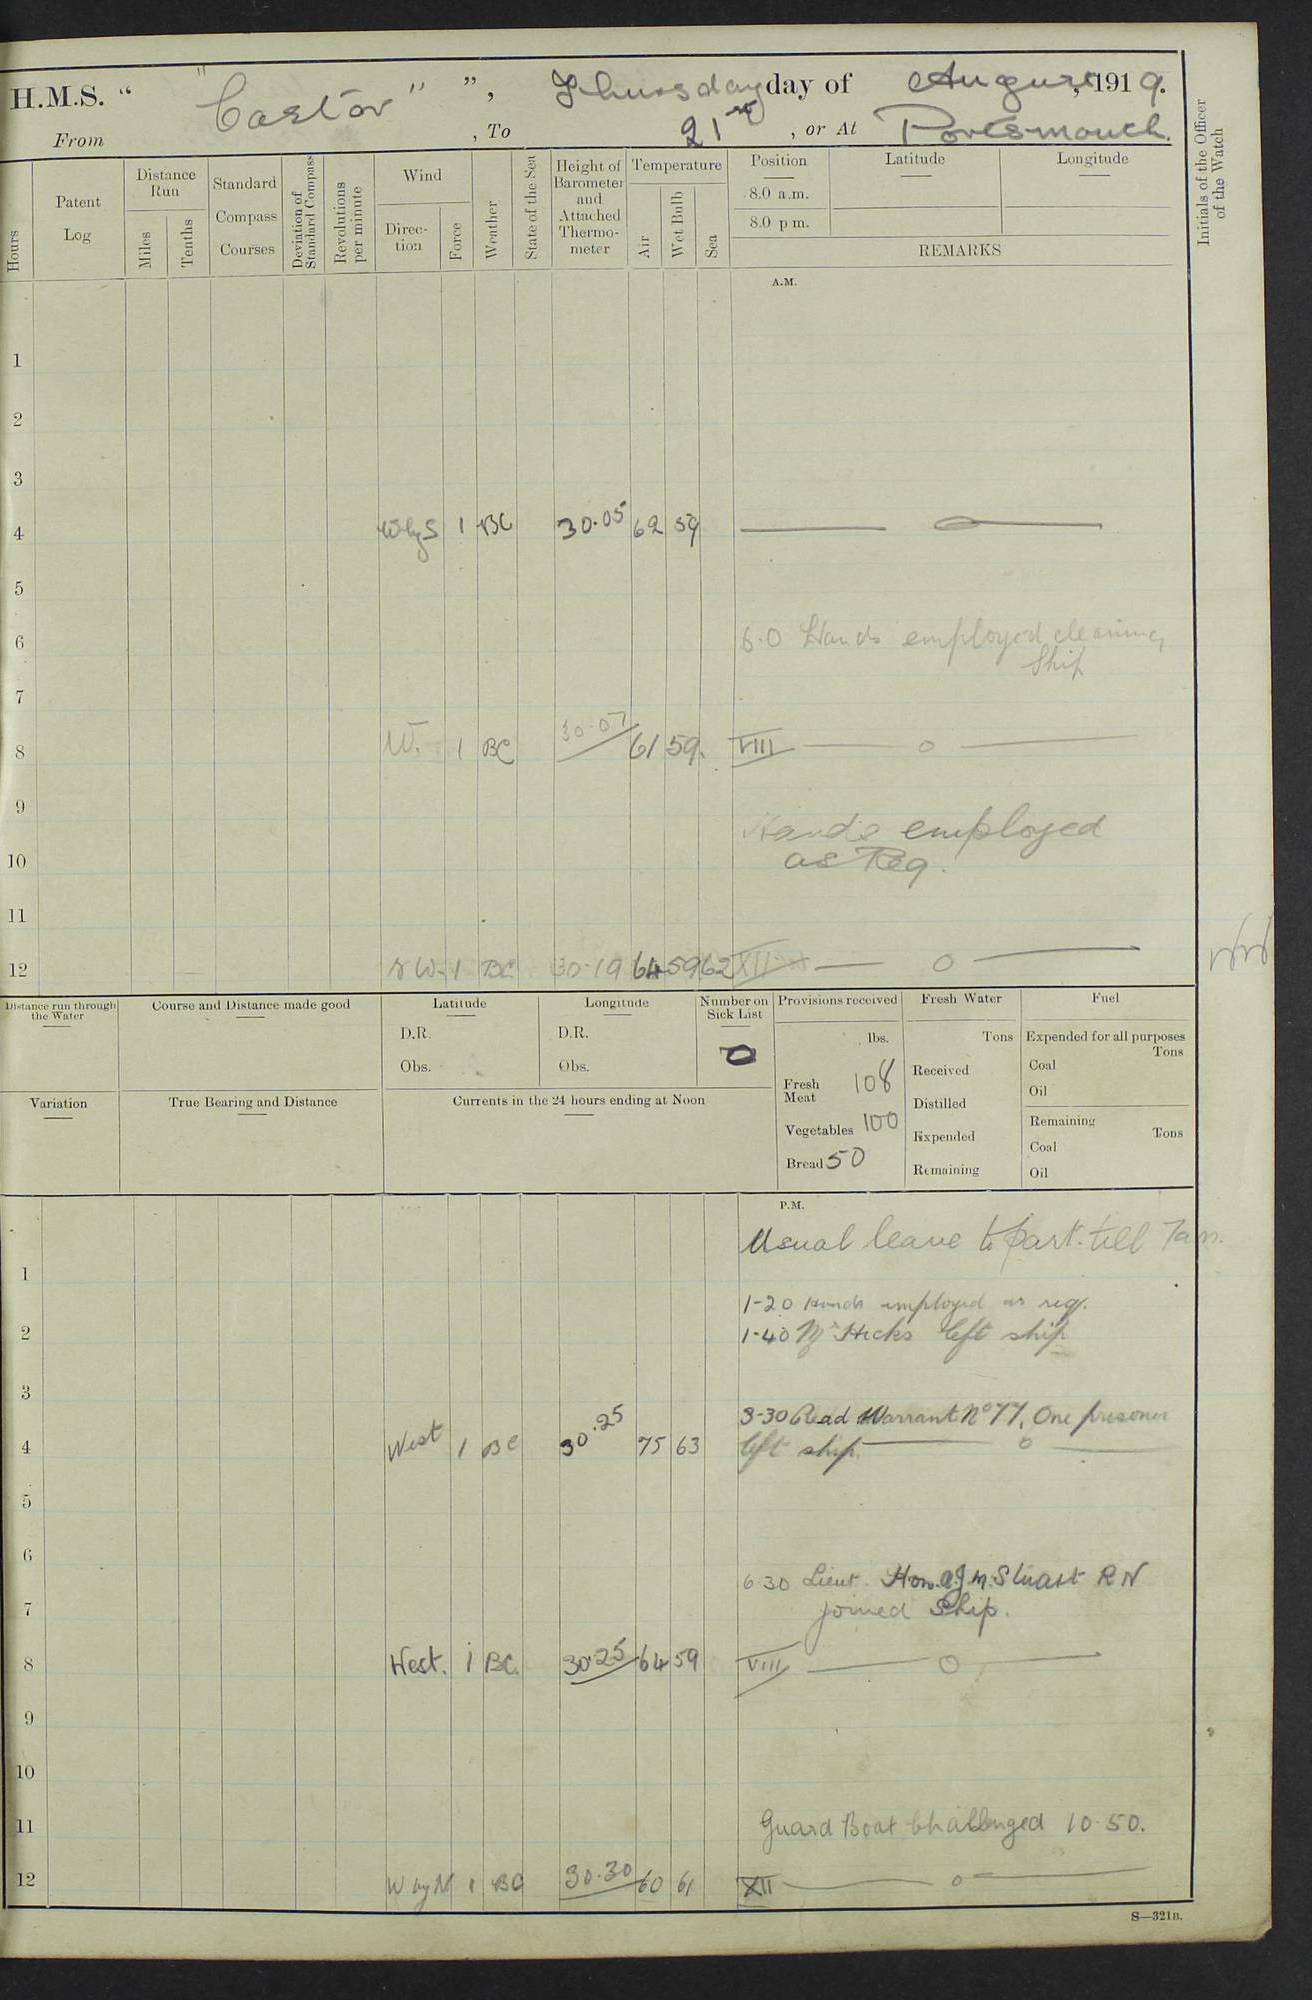 H.M.S. “ "Castor" ”, Thursday day of August, 1919.
From , To 21st , or At Portsmouth.
Hours
Patent Log
Distance Run
Miles
Tenths
Standard Compass Courses
Deviation of Standard Compass
Revolutions per minute
Wind
Direction
Force
Weather
State of the Sea
Height of Barometer and Attached Thermometer
Temperature
Air
Wet Bulb
Sea
Position
8.0 a.m.
8.0 p.m.
Latitude
Longitude
REMARKS
Initials of the Officer of the Watch
A.M.
1
2
3
4 WbyS 1 BC 30.05 62 59
5
6 6.0 Hands employed cleaning
Ship
7
8 W. 1 BC 30.07 61 59. VIII
9
Hands employed
10 as Req.
11
12 NW. 1 BC 30.19 64 59 62 XII
Distance run through the Water
Course and Distance made good
Latitude
D.R.
Obs.
Longitude
D.R.
Obs.
Number on Sick List
0
Provisions received
lbs.
Fresh Meat 108
Vegetables 100
Bread 50
Fresh Water
Tons
Received
Distilled
Expended
Remaining
Fuel
Expended for all purposes
Tons
Coal
Oil
Remaining
Tons
Coal
Oil
Variation
True Bearing and Distance
Currents in the 24 hours ending at Noon
P.M.
Usual leave to part. till 7am.
1
1-20 Hands employed as req.
2 1-40 Mr Hicks left ship
3
3-30 Read Warrant No 77. One prisoner
4 West 1 BC 30.25 75 63 left ship.
5
6
6.30 Lieut. Hon. A.J.M. Stuart RN
7 joined ship.
8 West. 1 BC. 30.25 64 59 VIII
9
10
11 Guard Boat Challenged 10.50.
12 W by N 1 BC 30.30 60 61 XII
S—321B.